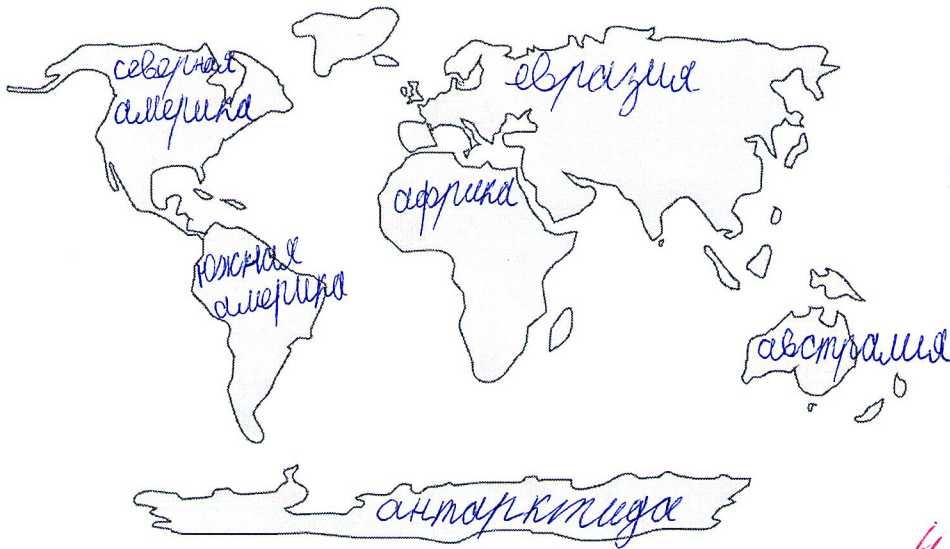 северная
америка
евразия
африка
южная
америка
австралия
антарктида